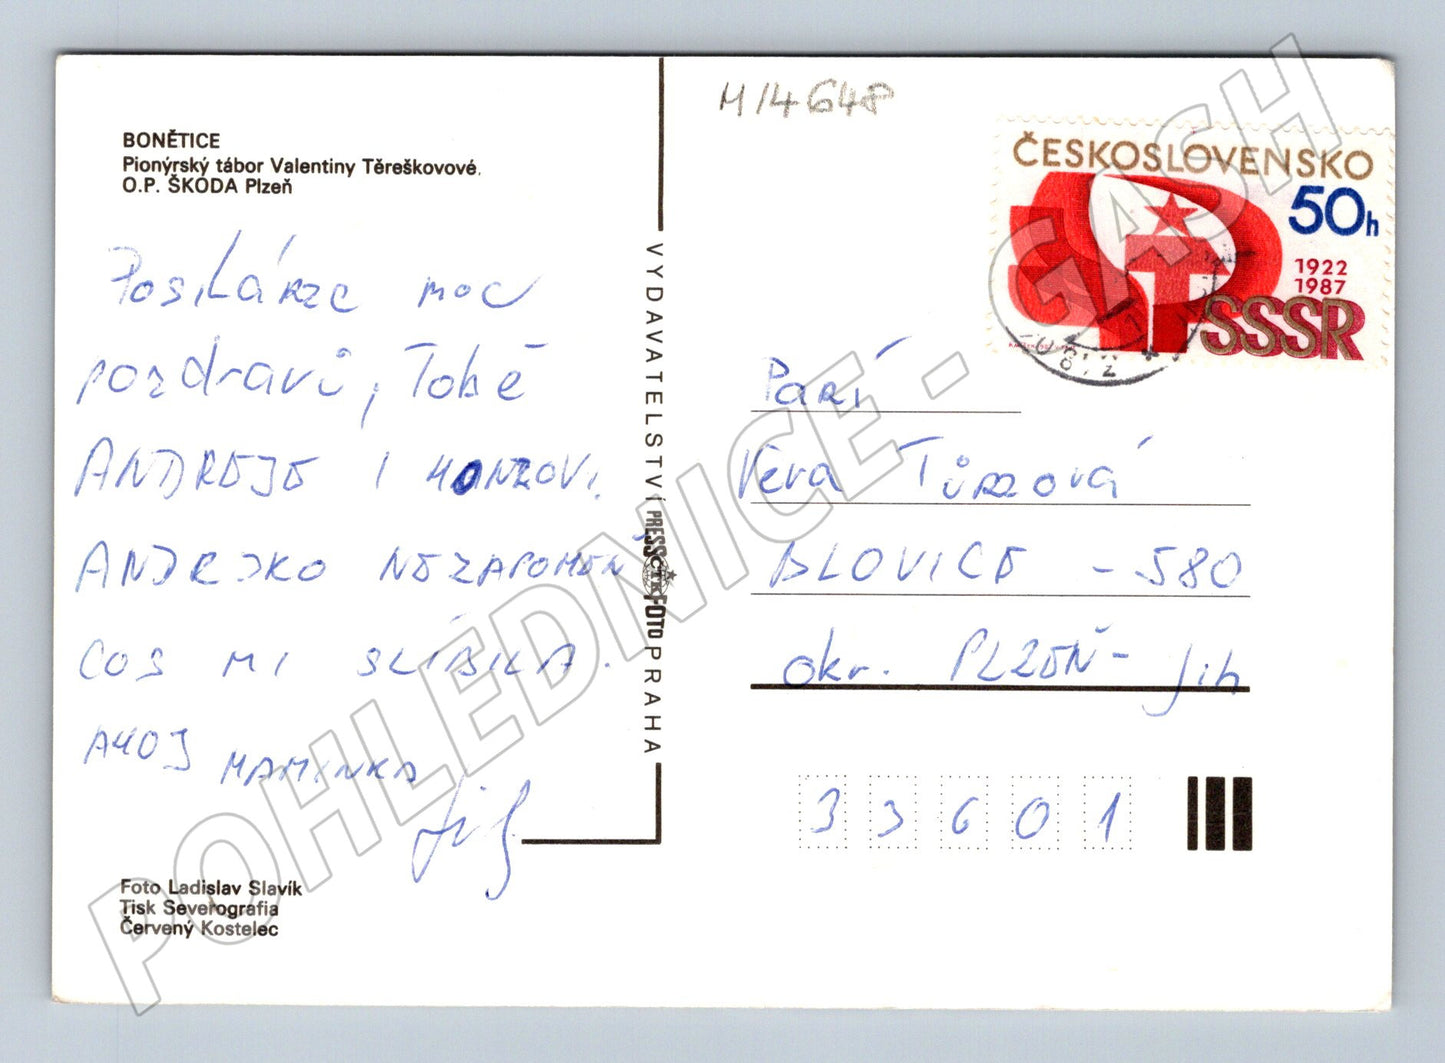 BONĚTICE
Pionýrský tábor Valentiny Těreškovové.
O.P. ŠKODA Plzeň
Posíláme moc
pozdravů, Tobě
ANDREJE I HONZOVI.
ANDREJKO NEZAPOMEŇ
COS MI SLÍBILA.
AHOJ MAMINKA
Foto Ladislav Slavík
Tisk Severografia
Červený Kostelec
VYDAVATELSTVÍ PRESSFOTO PRAHA
ČTK
M 14648
ČESKOSLOVENSKO
50h
1922
1987
SSSR
Paní
Věra Tůmová
BLOVICE - 580
okr. PLZEŇ - jih
33601
POHLEDNICE - GASH